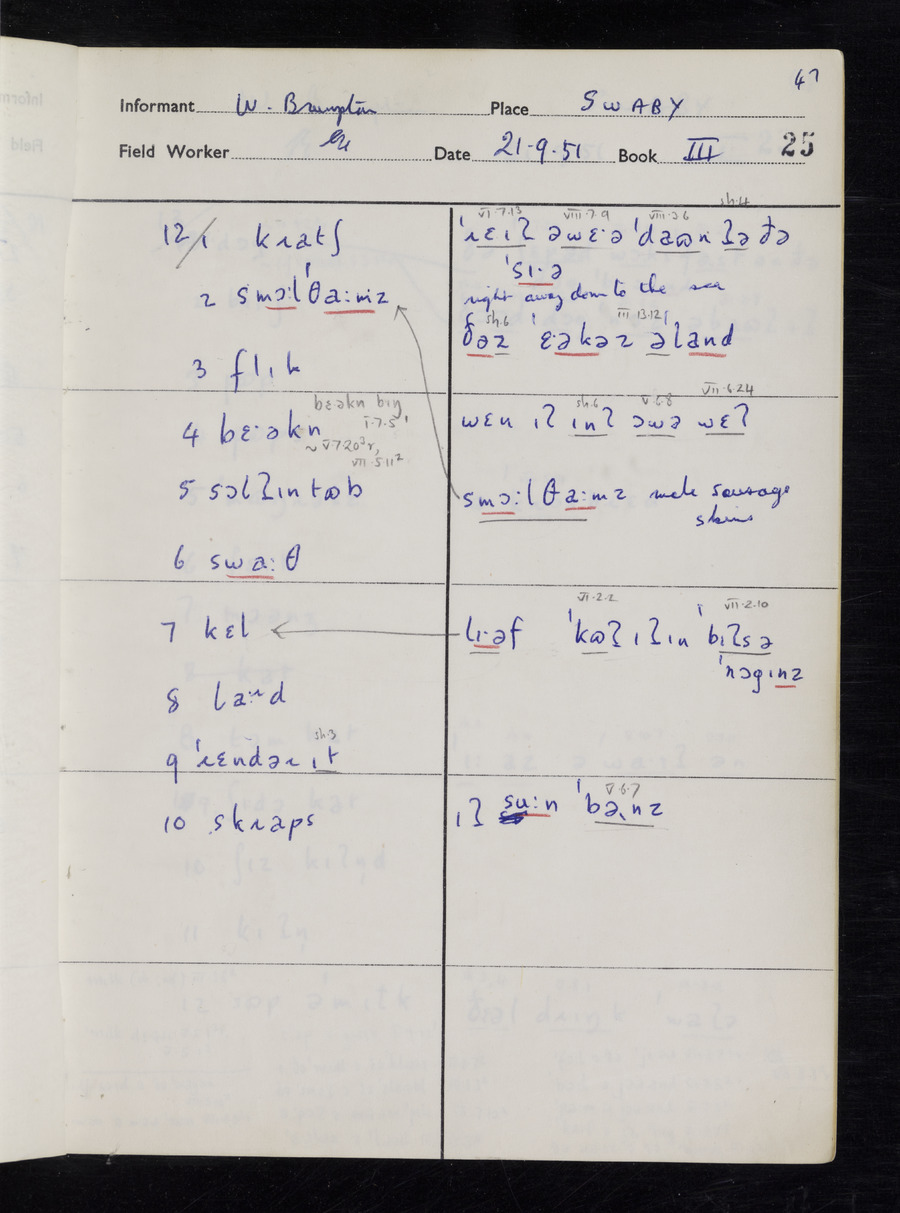 47
Informant W. Brumpton Place SWABY
Field Worker Date 21·9·51 Book III 25
12/1 kɹatʃ
2 smɔːlˈθaːmz
3 flɪk
bɛəkn bɪŋ
I·7·5
4 bɛ·əkn
5 sɔlʔɪntʊb
6 swaːθ
7 kɛl
8 land
sh.3
9 ˈɹɛndəɹɪt
10 skɹaps
sh.4
VI·7·13 VIII·7·9 VIII·3·6
ˈɹɛɪʔ əwɛ·ə ˈdaʊn ʔə ðə
ˈsɪ·ə
right away down to the sea
sh.6 III·13·12
ðəz ˈɛəkəz əland
sh.6 V·6·8 VII·6·24
wɛn ɪʔ ɪnʔ ɔwə wɛʔ
smɔːlθaːmz made sausage
skins
VI·2·2 VII·2·10
lɪ·əf ˈkʊʔ ɪʔ ɪn ˈbɪʔsə
ˈnɔgɪnz
V·6·7
ɪʔ suːn ˈbə.nz